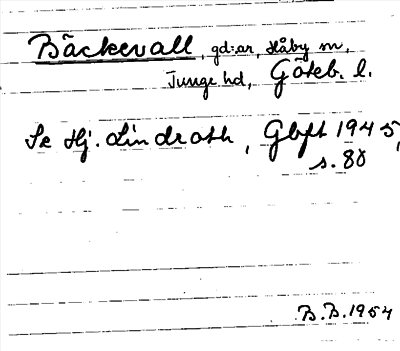 Bäckevall, gd:ar, Håby sn,
Tunge hd, Göteb. l.
Se Hj. Lindroth, Gbft 1945,
s. 80
B.B. 1954